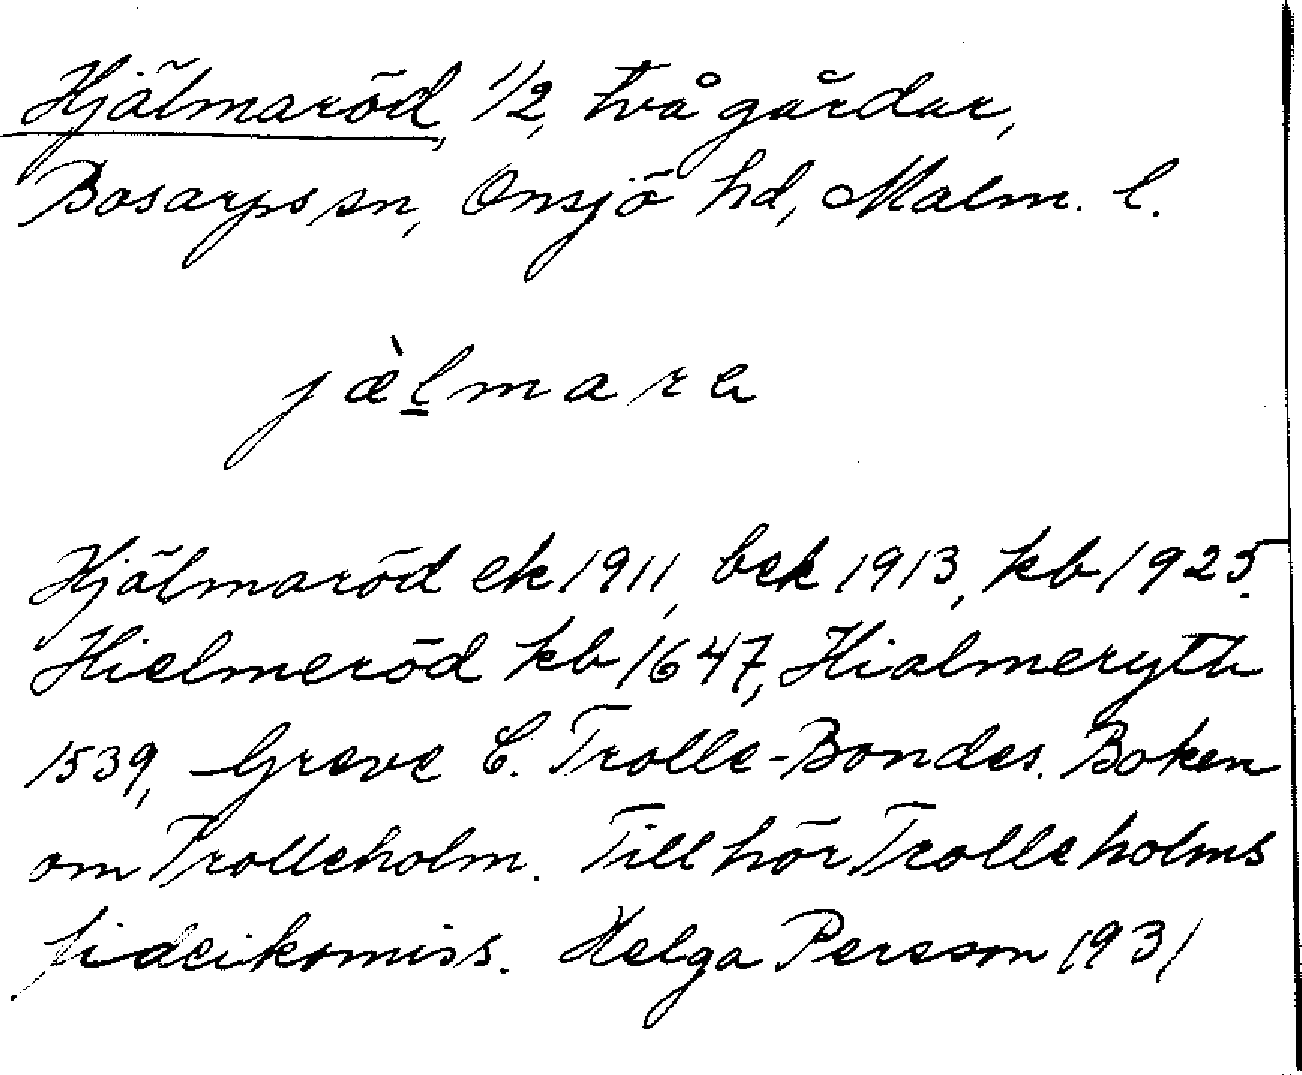 Hjälmaröd, 1/2, två gårdar,
Bosarps sn, Onsjö hd, Malm. l.
jæ̀l̲mara
Hjälmaröd ek 1911, bek 1913, kb 1925.
Hielmeröd kb 1647, Hialmeryth
1539, Greve C. Trolle-Bondes. Boken
om Trolleholm. Tillhör Trolleholms
fideikomiss. Helga Persson 1931